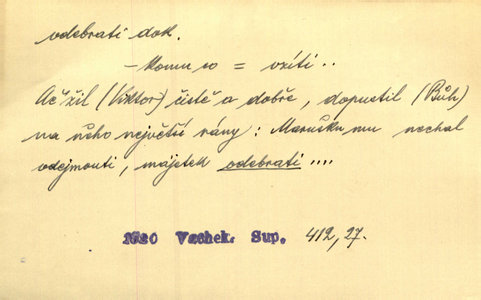 odebrati dok.
– komu co = vzíti ..
Ač žil (Viktor) čistě a dobře, dopustil (Bůh)
na něho největší rány: Marušku mu nechal
odejmouti, majetek odebrati ....
1620 Vachek. Sup. 412,27.